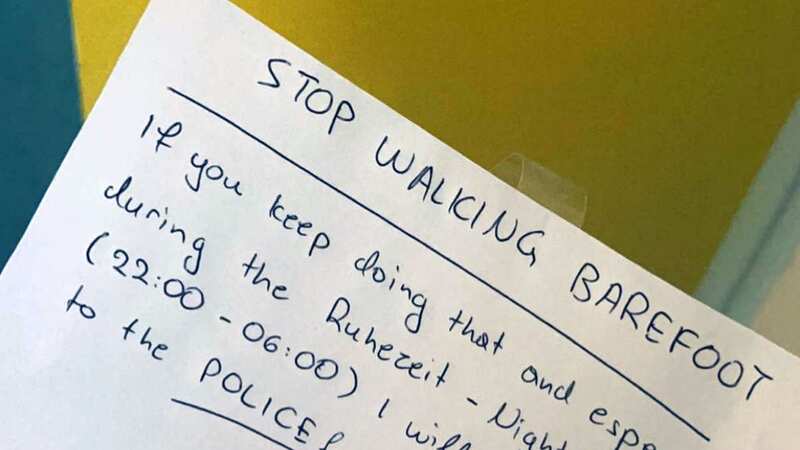 STOP WALKING BAREFOOT
If you keep doing that and espe
during the Ruhezeit - Night
(22:00 - 06:00) I will
to the POLICE!